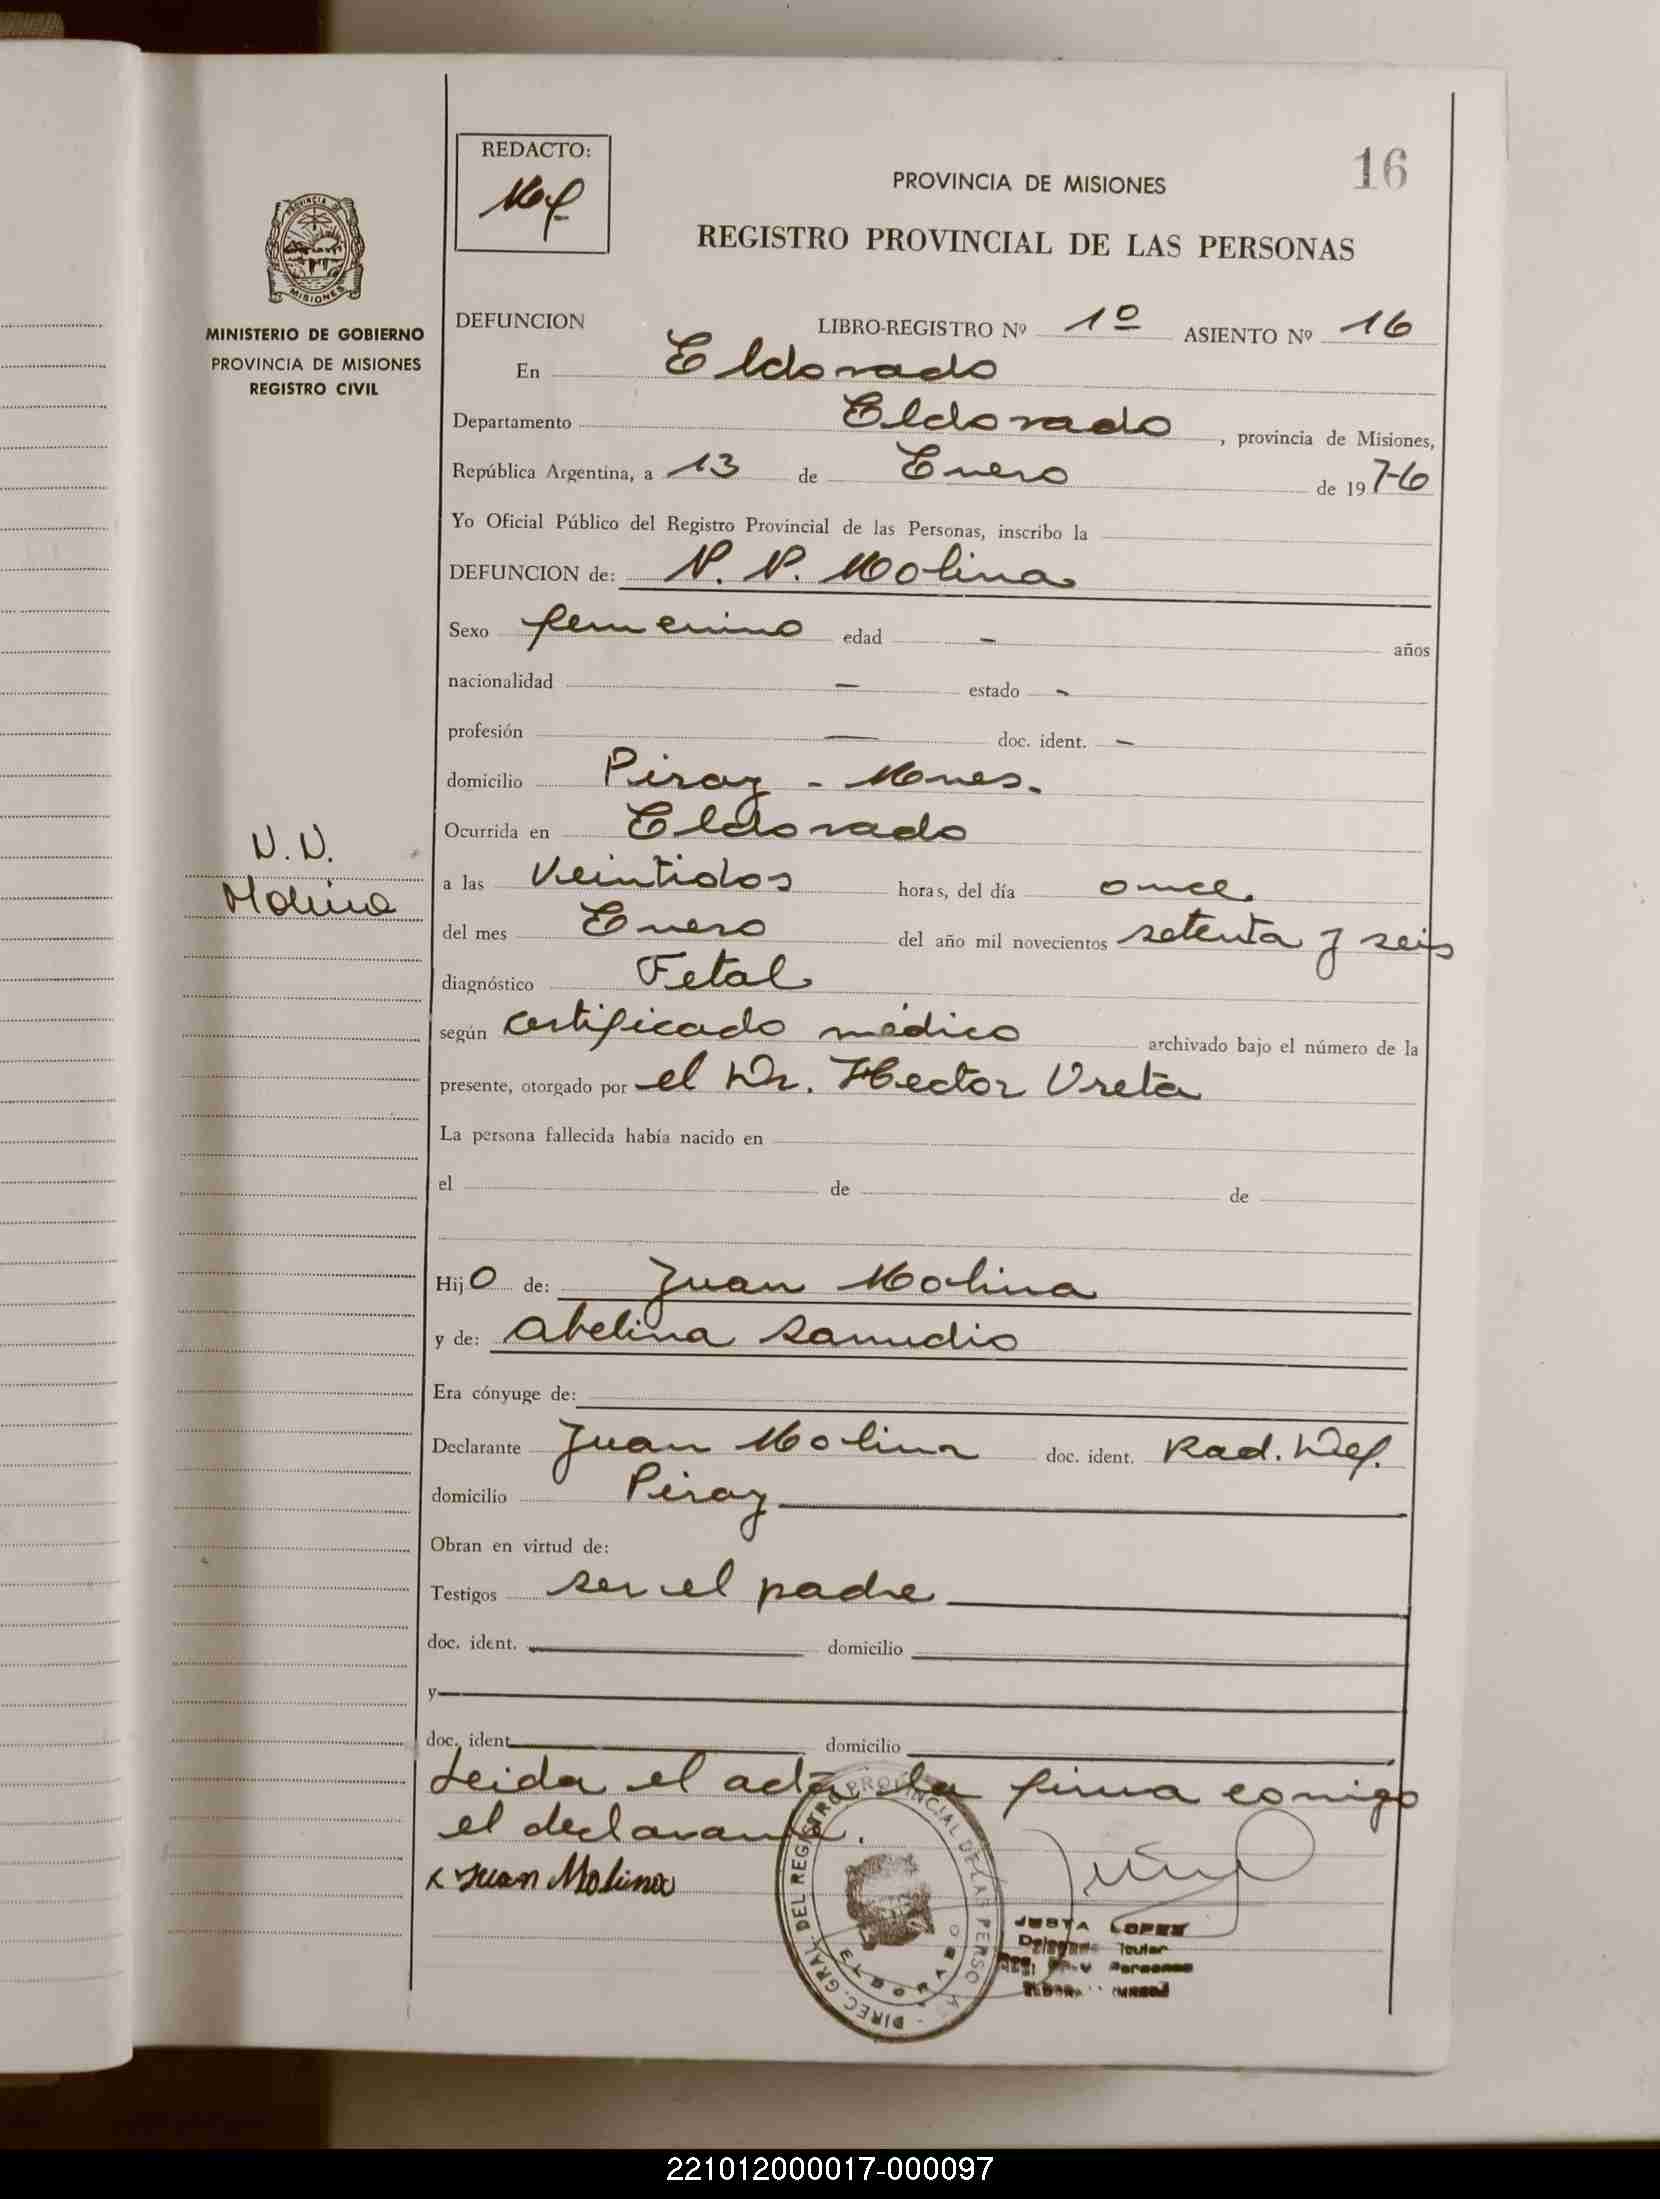 REDACTO:
16
PROVINCIA DE MISIONES
REGISTRO PROVINCIAL DE LAS PERSONAS
PROVINCIA DE
MISIONES
MINISTERIO DE GOBIERNO
PROVINCIA DE MISIONES
REGISTRO CIVIL
DEFUNCION LIBRO-REGISTRO Nº 1º ASIENTO Nº 16
En Eldorado
Departamento Eldorado, provincia de Misiones,
República Argentina, a 13 de Enero de 1976
Yo Oficial Público del Registro Provincial de las Personas, inscribo la
DEFUNCION de: N. N. Molina
Sexo femenino edad - años
nacionalidad - estado -
profesión - doc. ident. -
domicilio Piray - Mnes.
Ocurrida en Eldorado
N. N.
Molina
a las Veintidos horas, del día once.
del mes Enero del año mil novecientos setenta y seis
diagnóstico Fetal
según certificado médico archivado bajo el número de la
presente, otorgado por el Dr. Hector Ureta
La persona fallecida había nacido en
el de de
Hijo de: Juan Molina
y de: Abelina Samudio
Era cónyuge de:
Declarante Juan Molina doc. ident. Rad. Def.
domicilio Piray
Obran en virtud de:
Testigos ser el padre
doc. ident. domicilio
y
doc. ident. domicilio
Leida el acta la firma conmigo
el declarante.
x Juan Molina
DIREC. GRAL. DEL REGISTRO PROVINCIAL DE LAS PERSONAS
ELDORADO
JUSTA LOPEZ
221012000017-000097